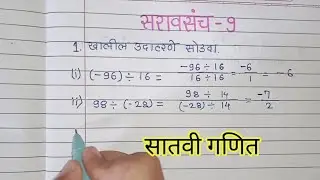 सरावसंच - 9
1. खालील उदाहरणे सोडवा.
(i) (-96) ÷ 16 = -96 ÷ 16 / 16 ÷ 16 = -6 / 1 = -6
ii) 98 ÷ (-28) = 98 ÷ 14 / (-28) ÷ 14 = -7 / 2
सातवी गणित